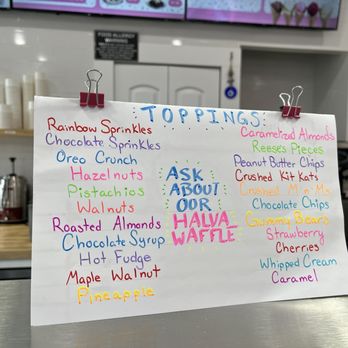 FOOD ALLERGY
TOPPINGS
Rainbow Sprinkles
Chocolate Sprinkles
Oreo Crunch
Hazelnuts
Pistachios
Walnuts
Roasted Almonds
Chocolate Syrup
Hot Fudge
Maple Walnut
Pineapple
ASK
ABOUT
OUR
HALVA
WAFFLE
Caramelized Almonds
Reeses Pieces
Peanut Butter Chips
Crushed Kit Kats
Crushed M n Ms
Chocolate Chips
Gummy Bears
Strawberry
Cherries
Whipped Cream
Caramel